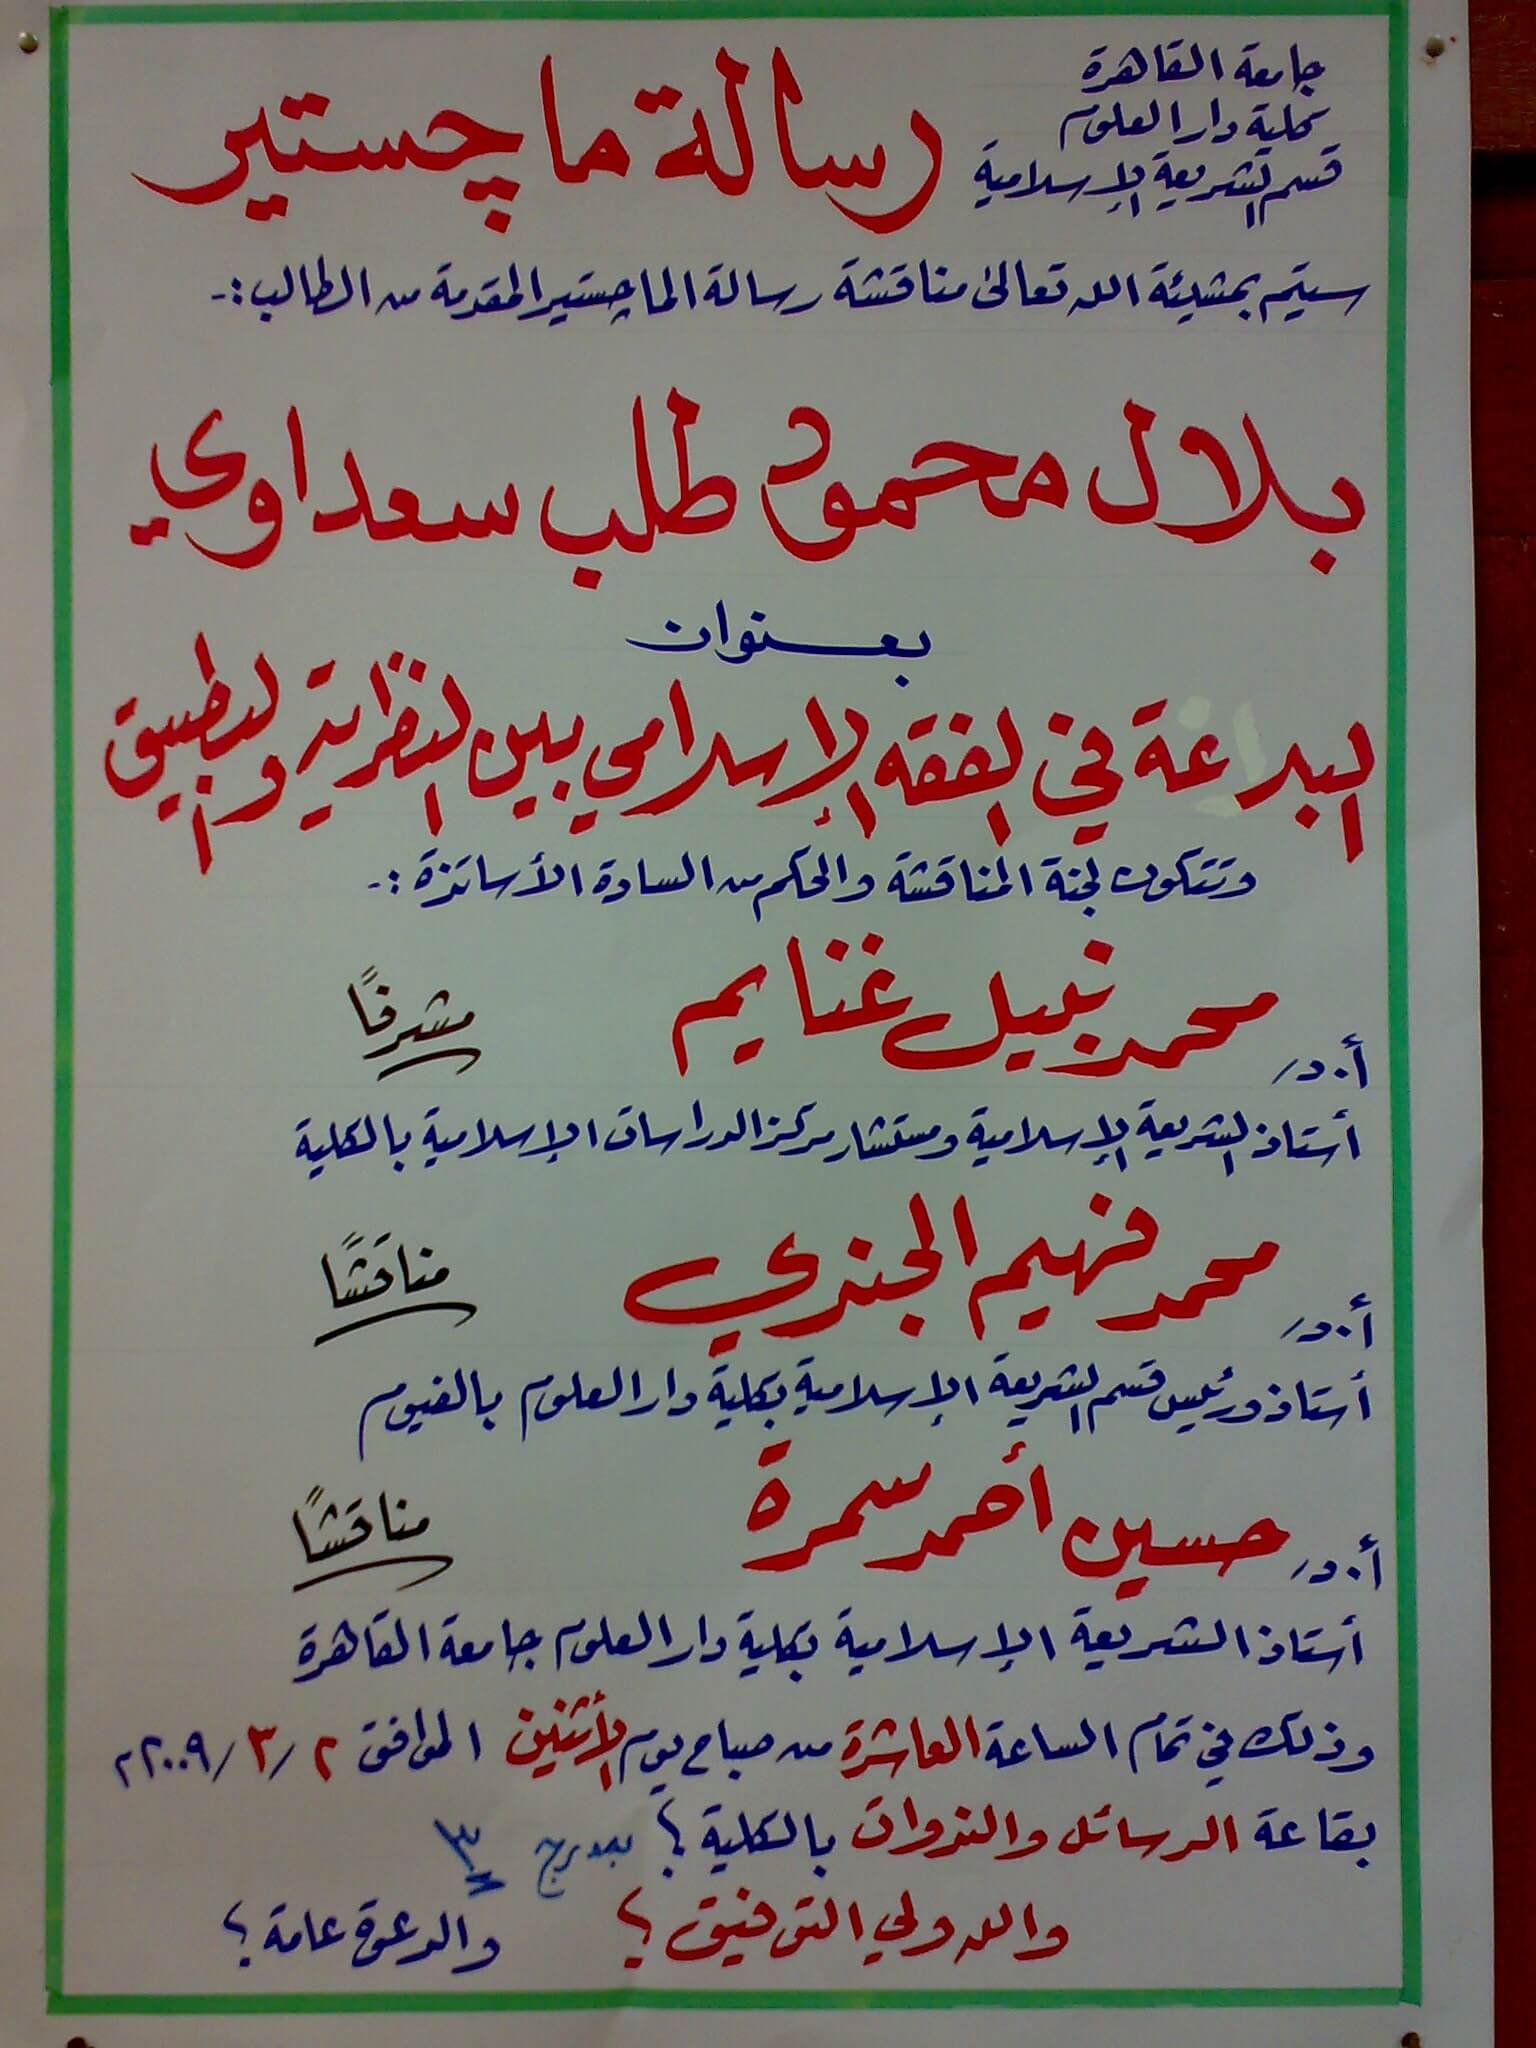 جامعة القاهرة
كلية دار العلوم
قسم الشريعة الإسلامية
رسالة ماچستير
سيتم بمشيئة الله تعالى مناقشة رسالة الماچستير المقدمة من الطالب :-
بلال محمود طلب سعداوي
بعنوان
في الفقه الإسلامي بين النظرية والتطبيق
وتتكون لجنة المناقشة والحكم من السادة الأساتذة :-
أ.د/ محمد نبيل غنايم مشرفًا
أستاذ الشريعة الإسلامية ومستشار مركز الدراسات الإسلامية بالكلية
أ.د/ محمد فهيم الجندي مناقشًا
أستاذ ورئيس قسم الشريعة الإسلامية بكلية دار العلوم بالفيوم
أ.د/ حسين أحمد سمرة مناقشًا
أستاذ الشريعة الإسلامية بكلية دار العلوم جامعة القاهرة
وذلك في تمام الساعة العاشرة من صباح يوم الأثنين الموافق ٢/٣/٢٠٠٩م
بقاعة الرسائل والندوات بالكلية ؟ بمدرج ٣
والله ولي التوفيق ؟ والدعوة عامة ؟